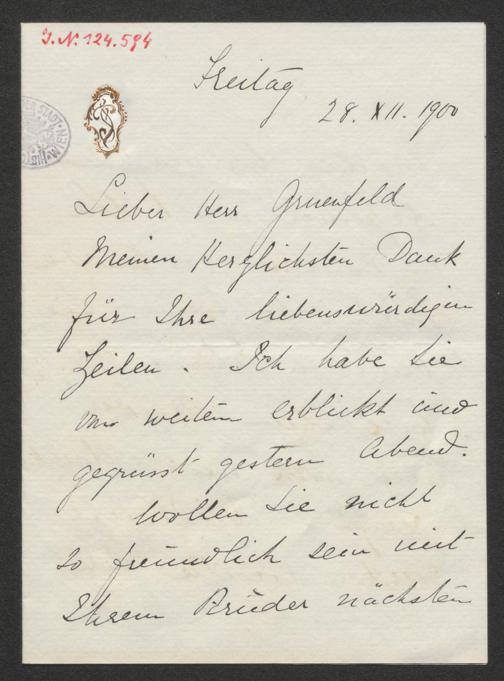 I.N. 124.594
Freitag
28. XII. 1900
Lieber Herr Gruenfeld
Meinen Herzlichsten Dank
für Ihre liebenswürdigen
Zeilen. Ich habe Sie
von weitem erblickt und
gegrüsst gestern Abend.
Wollen Sie nicht
so freundlich sein mit
Ihrem Bruder nächsten